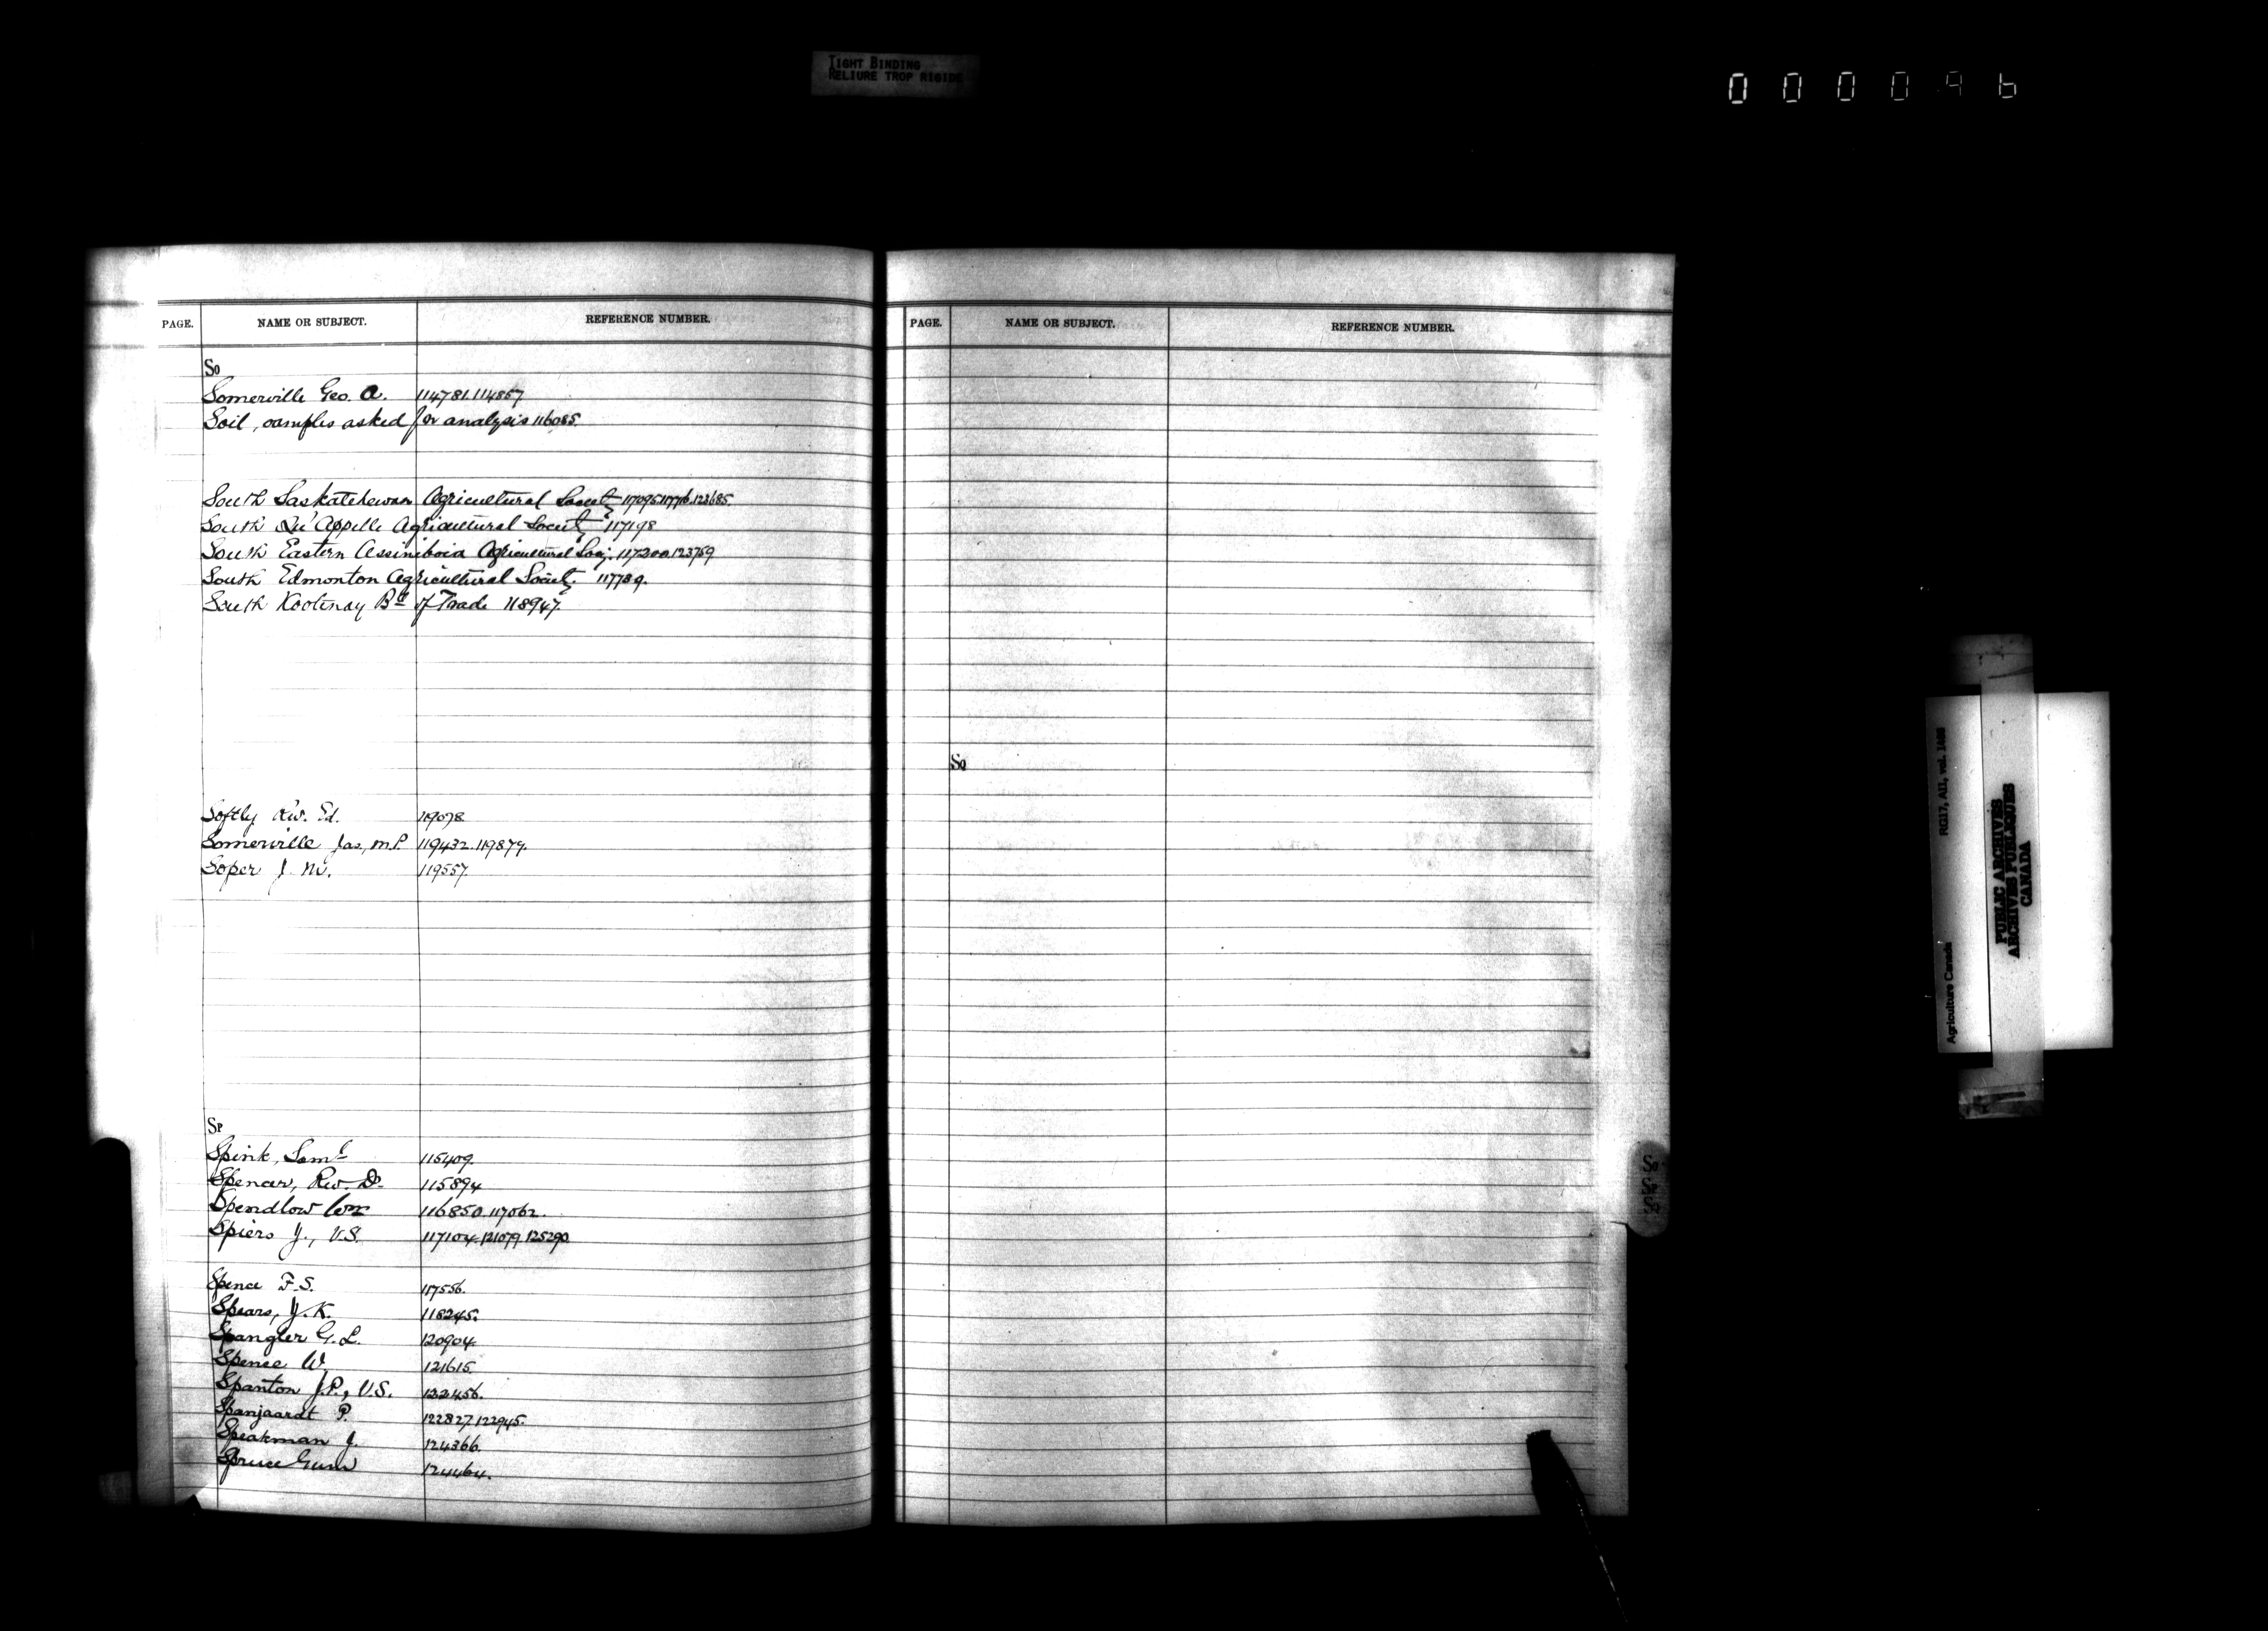 TIGHT BINDING
RELIURE TROP RIGIDE
000096
PAGE. NAME OR SUBJECT. REFERENCE NUMBER.
So
Somerville Geo. A. 114781.114857.
Soil, samples asked for analysis 116085.
South Saskatchewan Agricultural Society 117095.117716.123685.
South Qu'Appelle Agricultural Society 117198
South Eastern Assiniboia Agricultural Socy. 117200.123759
South Edmonton Agricultural Society. 117789.
South Kootenay Bd of Trade 118947.
Softly Rev. Ed. 119078
Somerville Jas, M.P. 119432.119879.
Soper J. M. 119557.
Sp
Spink, Saml 115409.
Spencer, Rev. D. 115894
Spendlow Wm 116850.117062.
Spiers J., V.S. 117104.121079.125290.
Spence F.S. 117556.
Spears, J.K. 118245.
Spangler G.L. 120904.
Spence W. 121615.
Spanton J.P., V.S. 122456.
Spanjaardt P. 122827.122945.
Speakman J. 124366.
Spruce Gum 124464.
PAGE. NAME OR SUBJECT. REFERENCE NUMBER.
Sq
So
Agriculture Canada RG17, AII, vol.
PUBLIC ARCHIVES
ARCHIVES PUBLIQUES
CANADA